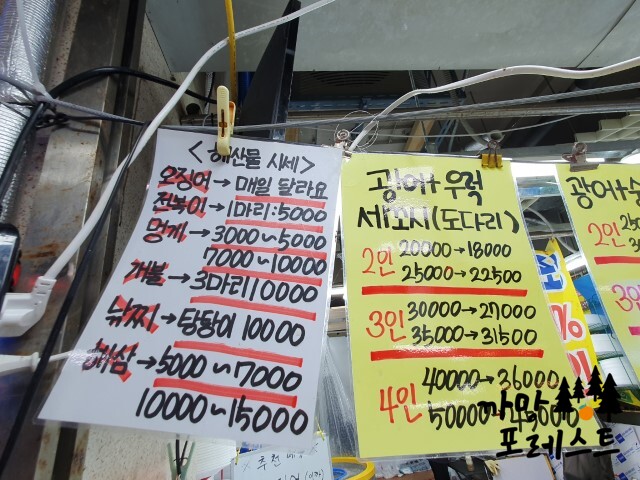 <해산물 시세>
오징어→매일 달라요
전복이→1마리:5000
멍게→3000~5000
7000~10000
개불→3마리10000
낙찌→탕탕이 10000
해삼→5000~7000
10000~15000
광어+우럭
세꼬시(도다리)
2인 20000→18000
25000→22500
3인 30000→27000
35000→31500
4인 40000→36000
50000→45000
광어+
2인
3인
까망
포레스트
추천